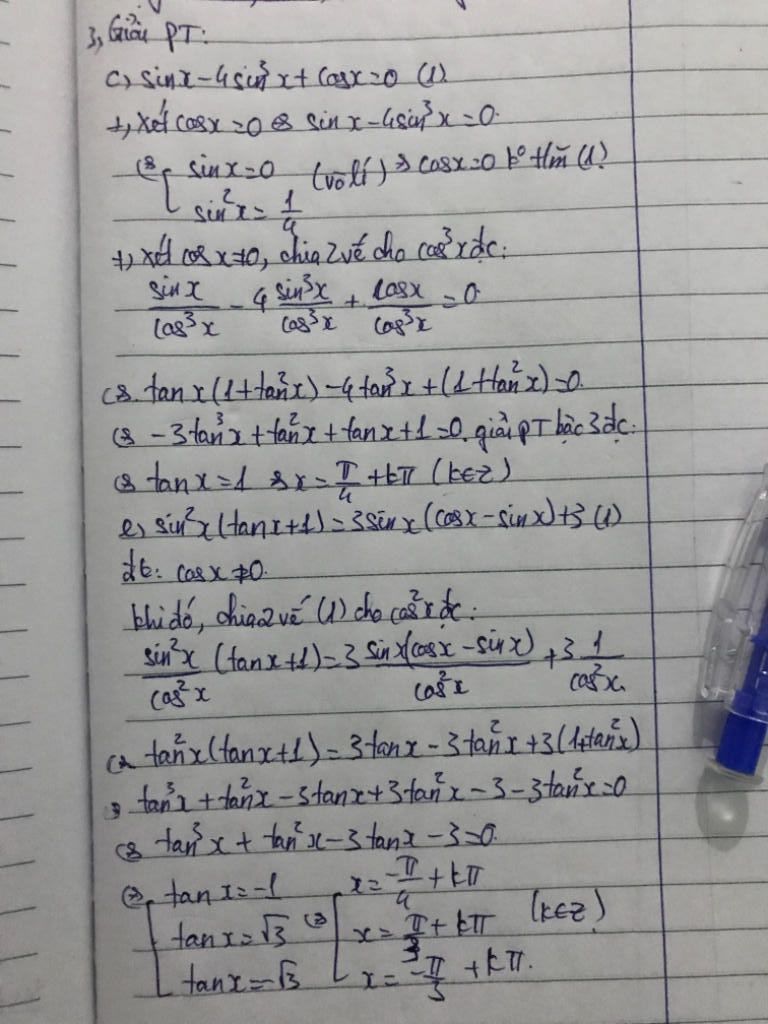 3, Giải PT:
c, sinx - 4sin³x + cosx = 0 (1)
+, Xét cosx = 0 ⇔ sinx - 4sin³x = 0.
⇔ [ sinx = 0 (vô lí) ⇒ cosx = 0 k° t/m (1)
sin²x = 1/4
+, Xét cosx ≠ 0, chia 2 vế cho cos³x đc:
sinx/cos³x - 4 sin³x/cos³x + cosx/cos³x = 0
⇔ tanx(1+tan²x) - 4tan³x + (1+tan²x) = 0
⇔ -3tan³x + tan²x + tanx + 1 = 0. giải PT bậc 3 đc:
⇔ tanx = 1 ⇔ x = π/4 + kπ (k∈Z)
e, sin²x(tanx+1) = 3sinx(cosx - sinx) + 3 (1)
đk: cosx ≠ 0.
khi đó, chia 2 vế (1) cho cos²x đc:
sin²x/cos²x (tanx+1) = 3 sinx(cosx - sinx)/cos²x + 3 1/cos²x.
⇔ tan²x(tanx+1) = 3tanx - 3tan²x + 3(1+tan²x)
⇔ tan³x + tan²x - 3tanx + 3tan²x - 3 - 3tan²x = 0
⇔ tan³x + tan²x - 3tanx - 3 = 0.
⇔ [ tanx = -1 ⇔ [ x = -π/4 + kπ
tanx = √3 x = π/3 + kπ (k∈Z)
tanx = -√3 x = -π/3 + kπ.